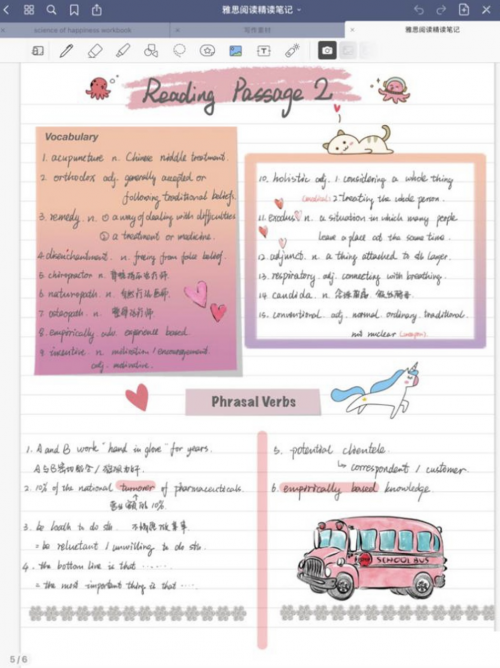 雅思阅读精读笔记
science of happiness workbook
写作素材
雅思阅读精读笔记
Reading Passage 2
Vocabulary
1. acupuncture n. Chinese niddle treatment.
2. orthodox adj. generally accepted or
following traditional beliefs.
3. remedy n. ① a way of dealing with difficulties
② a treatment or medicine.
4. disenchantment n. freeing from false belief.
5. chiropractor n.
6. naturopath n. 自然疗法医师.
7. osteopath n.
8. empirically adv. experience based.
9. incentive n. motivation / encouragement
adj. motivative.
10. holistic adj. 1. considering a whole thing
(medical) 2. treating the whole person.
11. exodus n. a situation in which many people
leave a place at the same time.
12. adjunct n. a thing attached to its larger.
13. respiratory adj. connecting with breathing.
14. candida n.
15. conventional adj. normal. ordinary. traditional.
not nuclear (weapon).
Phrasal Verbs
1. A and B work "hand in glove" for years.
2. 10% of the national turnover of pharmaceuticals.
10%.
3. be loath to do sth. 不情愿做某事
= be reluctant / unwilling to do sth.
4. the bottom line is that ......
= the most important thing is that ....
5. potential clientele
↳ correspondent / customer.
6. empirically based knowledge
SCHOOL BUS
5 / 6